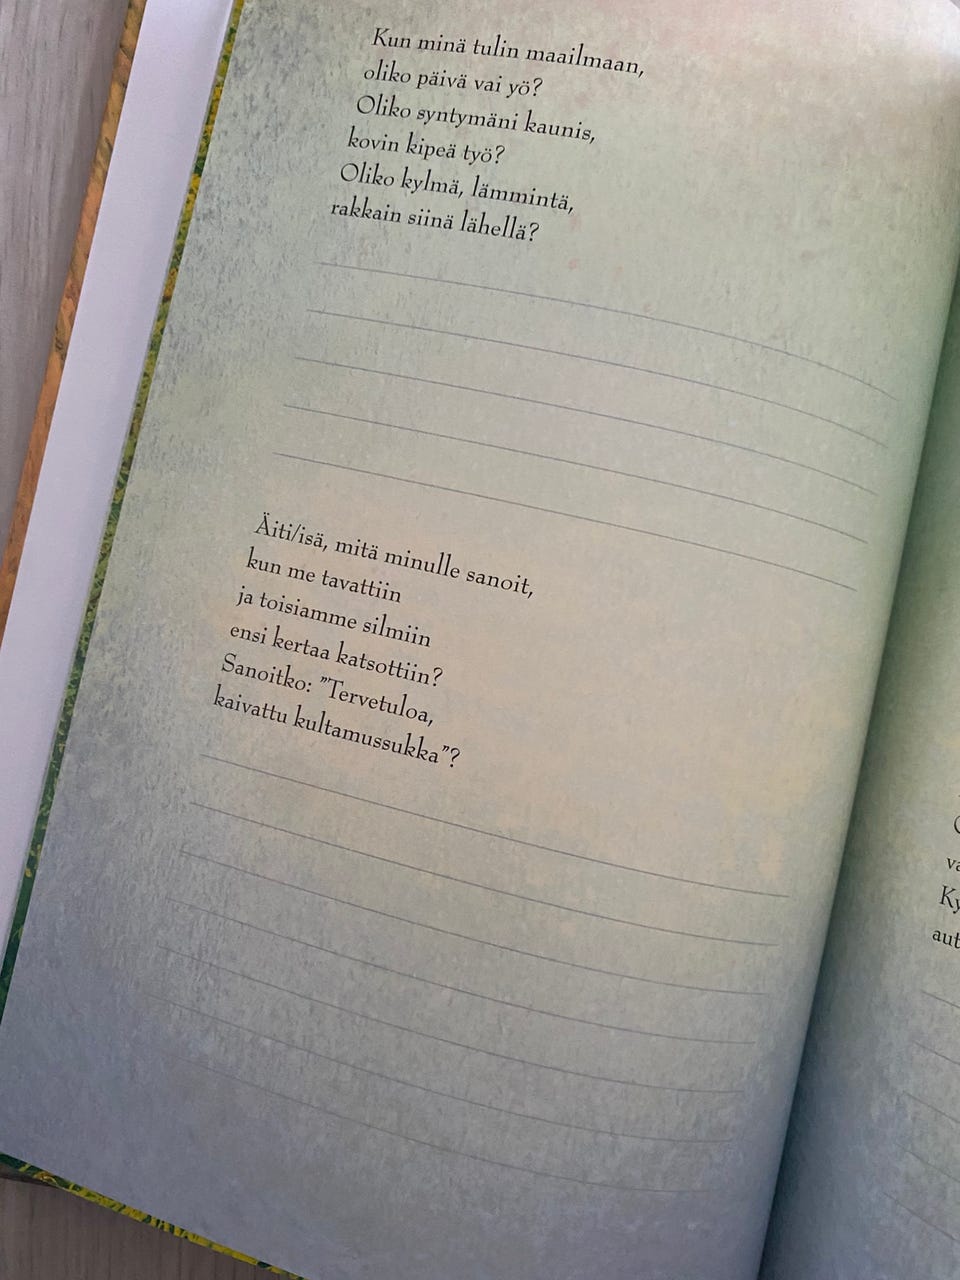 Kun minä tulin maailmaan,
oliko päivä vai yö?
Oliko syntymäni kaunis,
kovin kipeä työ?
Oliko kylmä, lämmintä,
rakkain siinä lähellä?
Äiti/isä, mitä minulle sanoit,
kun me tavattiin
ja toisiamme silmiin
ensi kertaa katsottiin?
Sanoitko: ”Tervetuloa,
kaivattu kultamussukka”?
Ky
aut